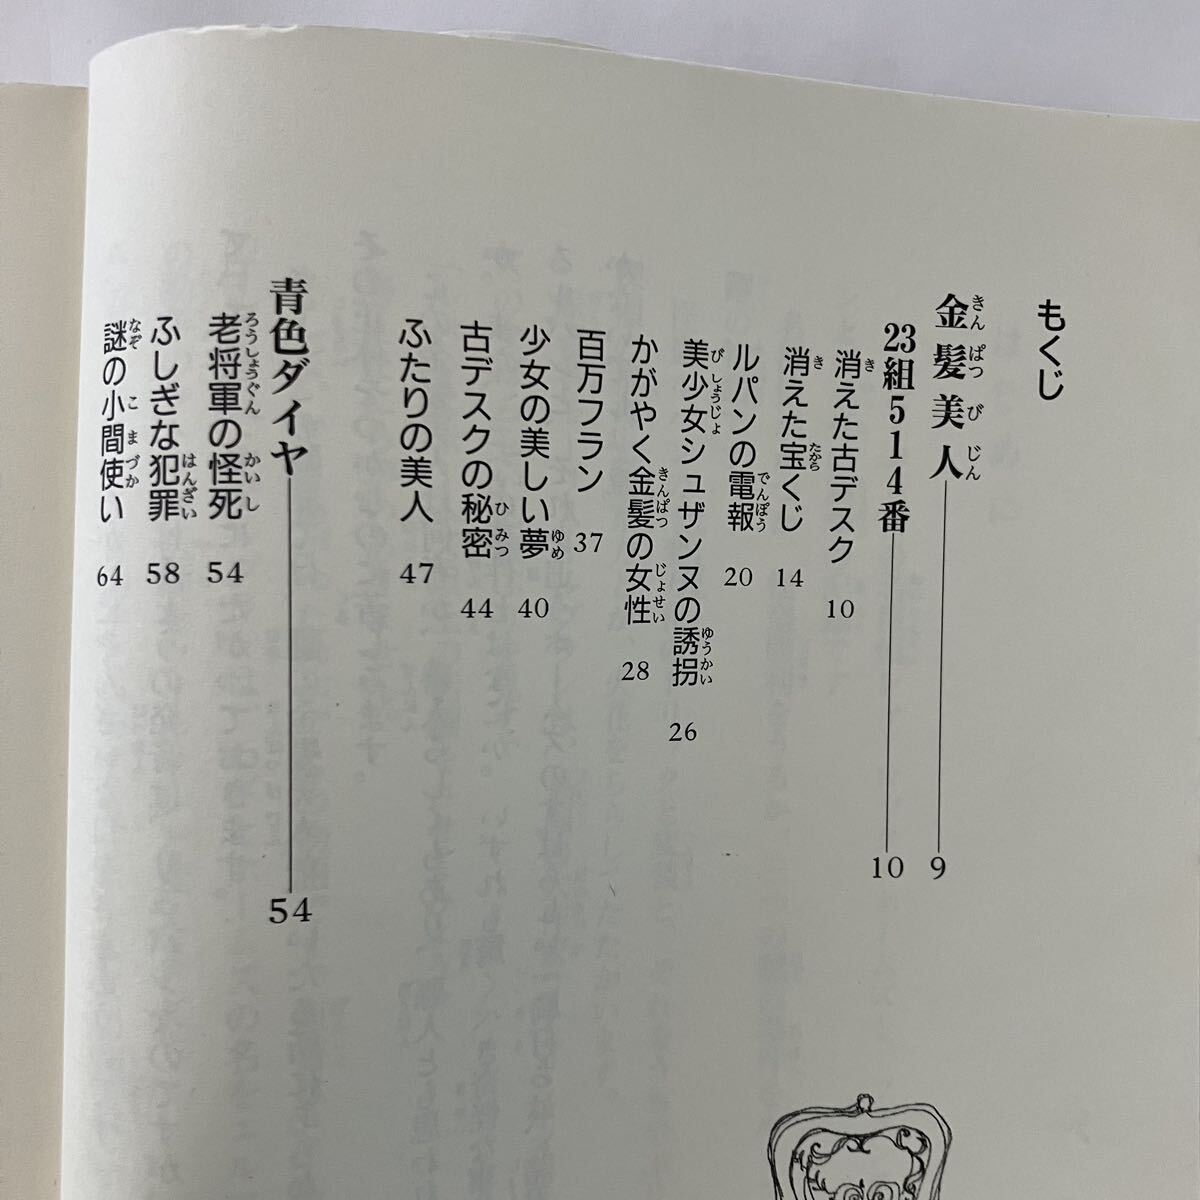 もくじ
金髪美人 9
23組514番 10
消えた古デスク 10
消えた宝くじ 14
ルパンの電報 20
美少女シュザンヌの誘拐 26
かがやく金髪の女性 28
百万フラン 37
少女の美しい夢 40
古デスクの秘密 44
ふたりの美人 47
青色ダイヤ 54
老将軍の怪死 54
ふしぎな犯罪 58
謎の小間使い 64